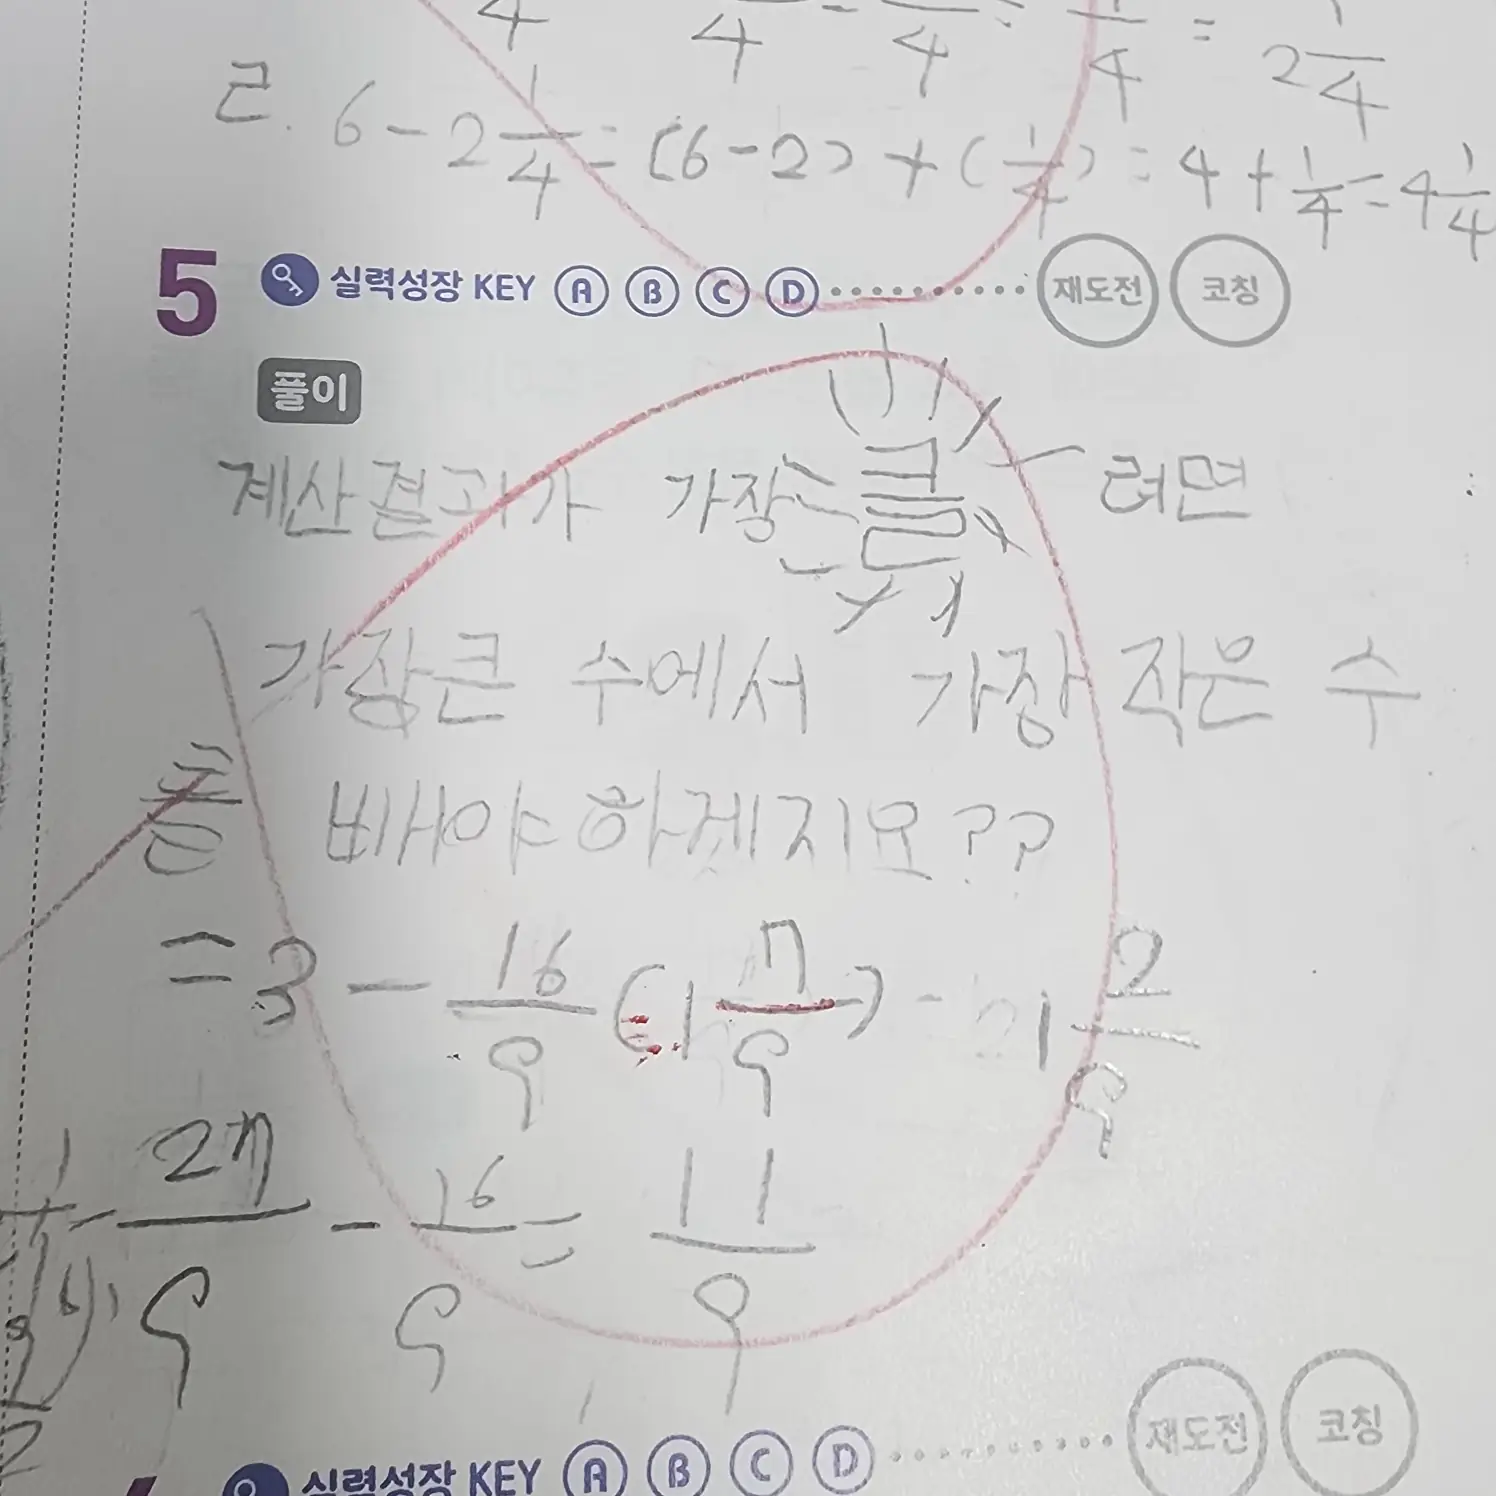 4 4 - 4 ÷ 4 = 2 1/4
ㄹ. 6 - 2 1/4 = (6 - 2) + (1/4) = 4 + 1/4 = 4 1/4
5 실력성장 KEY A B C D 재도전 코칭
풀이
계산결과가 가장 클 려면
가장큰 수에서 가장 작은 수
를 빼야하겠지요??
= 3 - 16/9 (= 1 7/9) = 1 2/9
27/9 - 16/9 = 11/9
실력성장 KEY A B C D 재도전 코칭